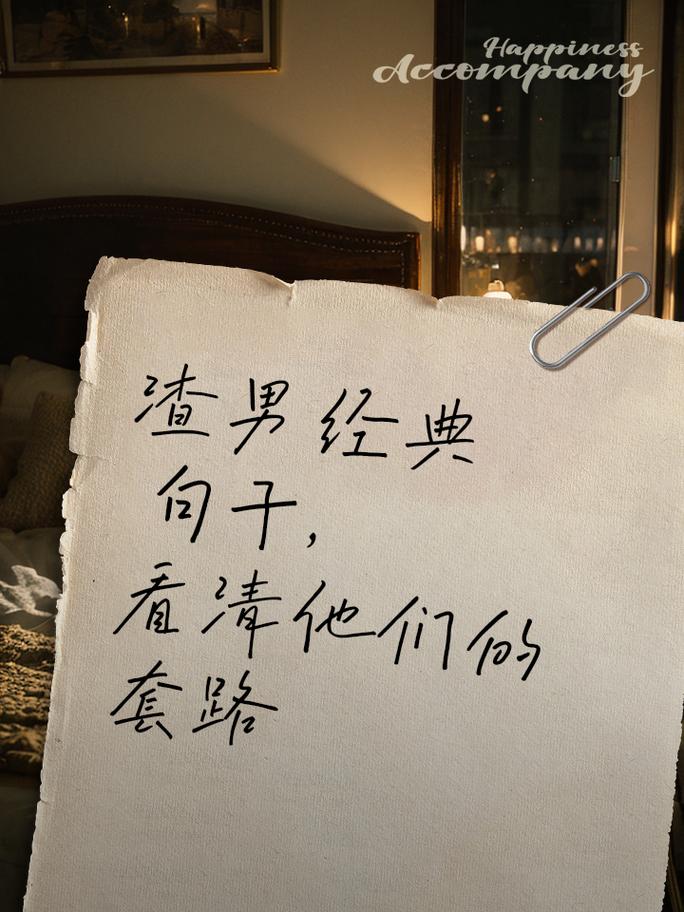 Happiness
Accompany
渣男经典
句子,
看清他们的
套路